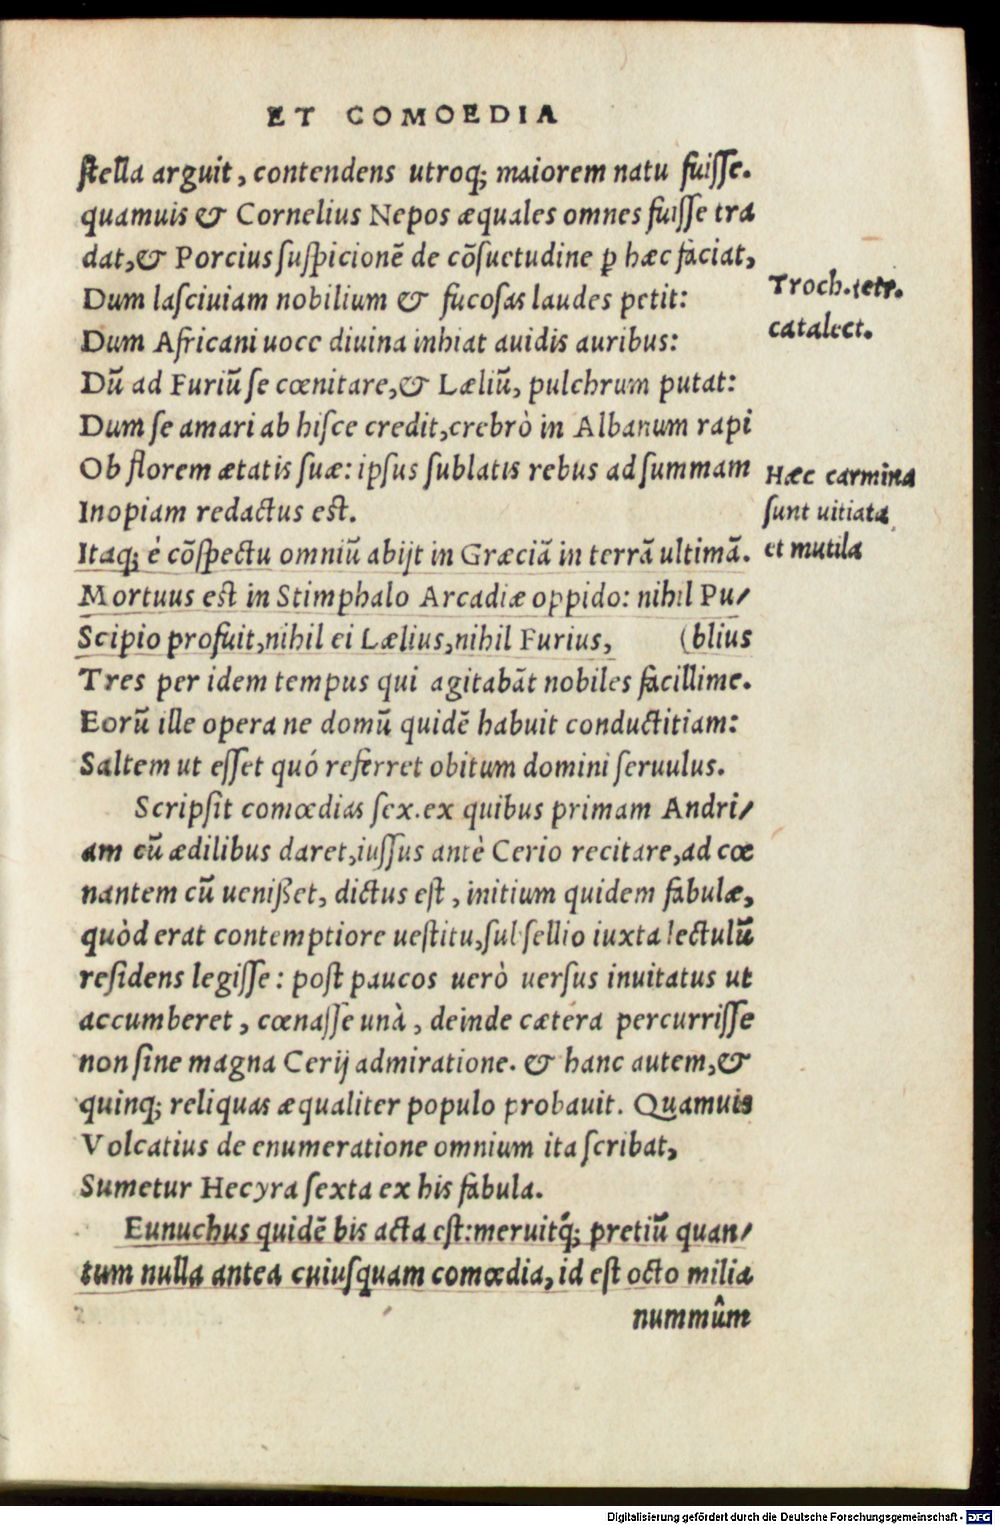 ET COMOEDIA
ſtella arguit, contendens utroq; maiorem natu fuiſſe.
quamuis & Cornelius Nepos æquales omnes fuiſſe tra
dat, & Porcius ſuſpicionē de cōſuetudine ꝑ hæc faciat,
Troch. tetr.
Dum laſciuiam nobilium & fucoſas laudes petit:
catalect.
Dum Africani uoce diuina inhiat auidis auribus:
Dū ad Furiū ſe cœnitare, & Læliū, pulchrum putat:
Dum ſe amari ab hiſce credit, crebrò in Albanum rapi
Ob florem ætatis ſuæ: ipſus ſublatis rebus ad ſummam
Hæc carmina
Inopiam redactus eſt.
ſunt uitiata
Itaq; è cōſpectu omniū abijt in Græciā in terrā ultimā.
et mutila
Mortuus eſt in Stimphalo Arcadiæ oppido: nihil Pu/
Scipio profuit, nihil ei Lælius, nihil Furius, (blius
Tres per idem tempus qui agitabāt nobiles facillime.
Eorū ille opera ne domū quidē habuit conductitiam:
Saltem ut eſſet quó referret obitum domini ſeruulus.
Scripſit comœdias ſex. ex quibus primam Andri/
am cū ædilibus daret, iuſſus antè Cerio recitare, ad cœ
nantem cū ueniſſet, dictus eſt, initium quidem fabulæ,
quòd erat contemptiore ueſtitu, ſubſellio iuxta lectulū
reſidens legiſſe: poſt paucos uerò uerſus inuitatus ut
accumberet, cœnaſſe unà, deinde cætera percurriſſe
non ſine magna Cerij admiratione. & hanc autem, &
quinq; reliquas æqualiter populo probauit. Quamuis
Volcatius de enumeratione omnium ita ſcribat,
Sumetur Hecyra ſexta ex his fabula.
Eunuchus quidē bis acta eſt: meruitq́; pretiū quan/
tum nulla antea cuiuſquam comœdia, id eſt octo milia
nummûm
Digitalisierung gefördert durch die Deutsche Forschungsgemeinschaft - DFG